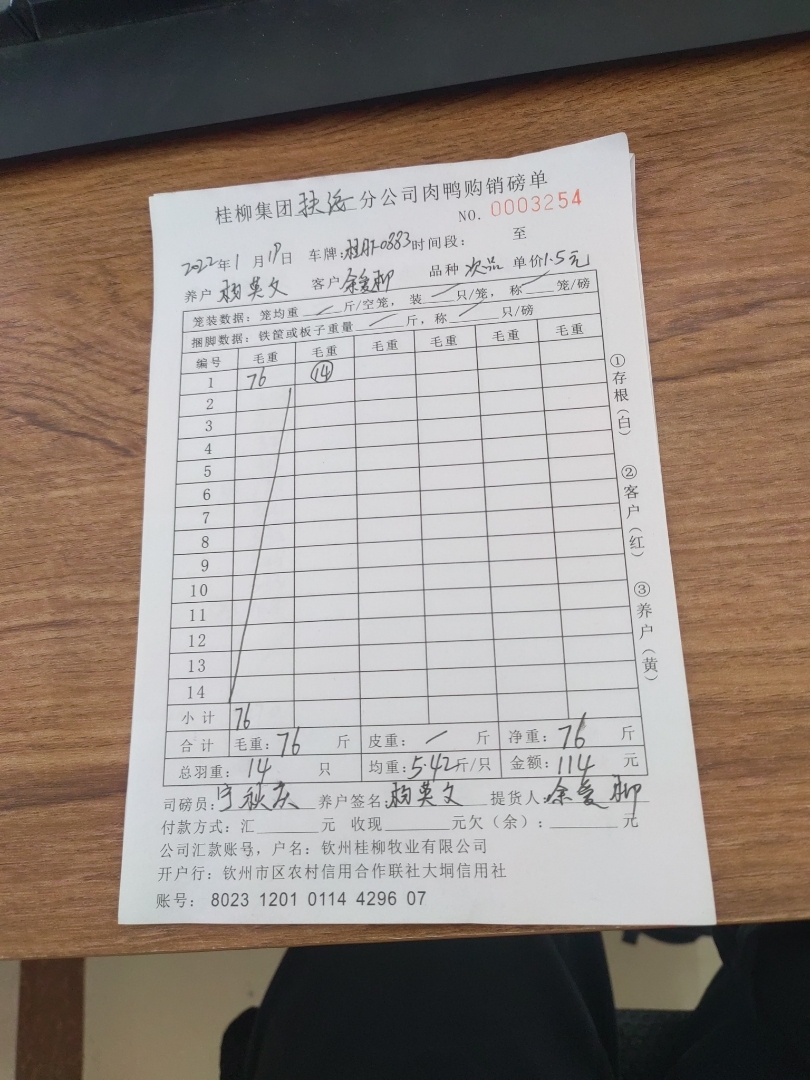 桂柳集团扶海分公司肉鸭购销磅单
NO. 0003254
2022年1月19日 车牌:桂A·F0883时间段: 至
养户 杨英文 客户 余爱柳 品种 次品 单价1.5元
笼装数据:笼均重 / 斤/空笼,装 / 只/笼,称 / 笼/磅
捆脚数据:铁筐或板子重量 / 斤,称 / 只/磅
编号 毛重 毛重 毛重 毛重 毛重 毛重
1 76 14
2
3
4
5
6
7
8
9
10
11
12
13
14
小计 76
合计 毛重:76 斤 皮重: / 斤 净重:76 斤
总羽重:14 只 均重:5.42斤/只 金额:114 元
司磅员:宁秋庆 养户签名:杨英文 提货人:余爱柳
付款方式:汇 元 收现 元欠(余): 元
公司汇款账号,户名:钦州桂柳牧业有限公司
开户行:钦州市区农村信用合作联社大垌信用社
账号: 8023 1201 0114 4296 07
①存根(白) ②客户(红) ③养户(黄)